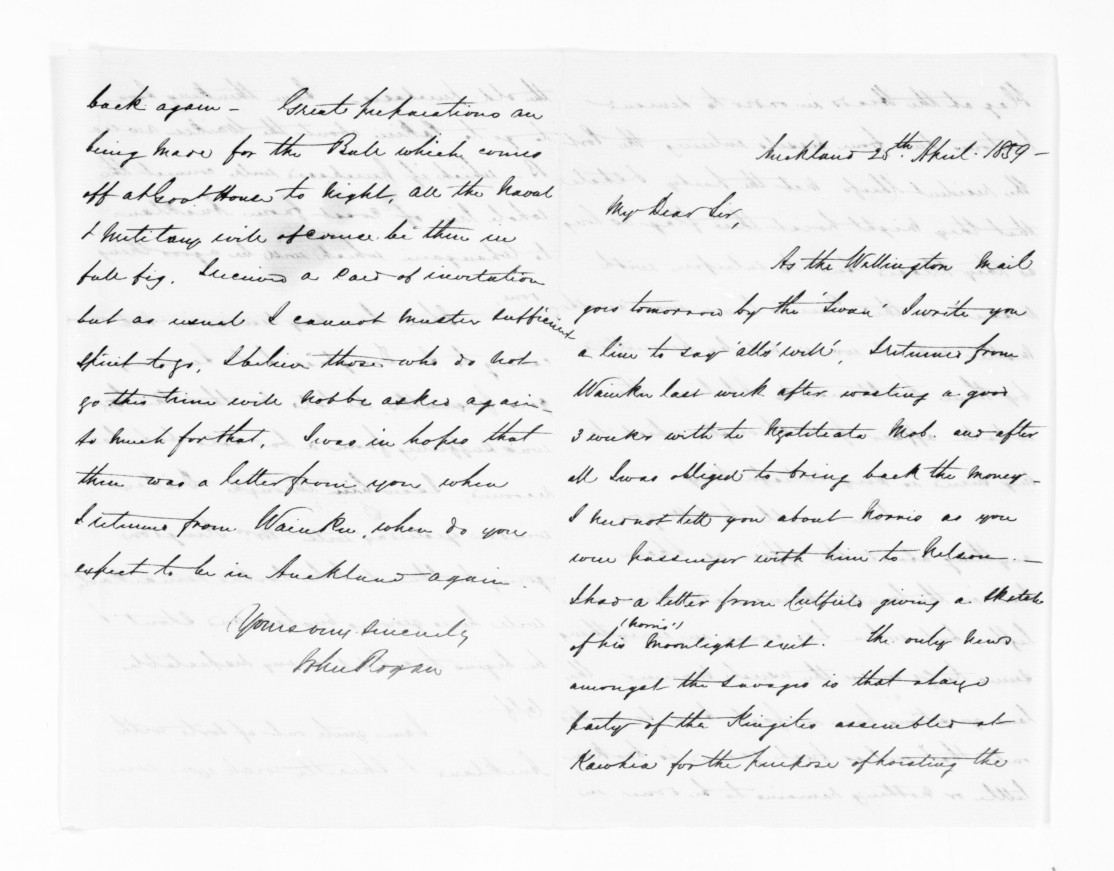 Auckland 25th. April. 1859 -
My Dear Sir,
As the Wellington Mail
goes tomorrow by the 'Swan' I write you
a line to say 'all's well', I returned from
Waiuku last week after wasting a good
3 weeks with te Ngatiteata Mob. and after
all I was obliged to bring back the money -
I need not tell you about Norris as you
were Passenger with him to Nelson. -
I had a letter from Cutfield giving a sketch
of his (Norris') Moonlight exit. the only news
amongst the savages is that a large
party of the Kingites assembled at
Kawhia for the purpose of hoisting the
back again - Great preparations are
being made for the Ball which comes
off at Govt House to night, all the Naval
& Military will of course be there in
full fig. I received a card of invitation
but as usual I cannot muster sufficient
spirit to go, I believe those who do not
go this time will not be asked again -
so much for that, I was in hopes that
there was a letter from you when
I returned from Waiuku. when do you
expect to be in Auckland again.
Yours very sincerely
John Rogan